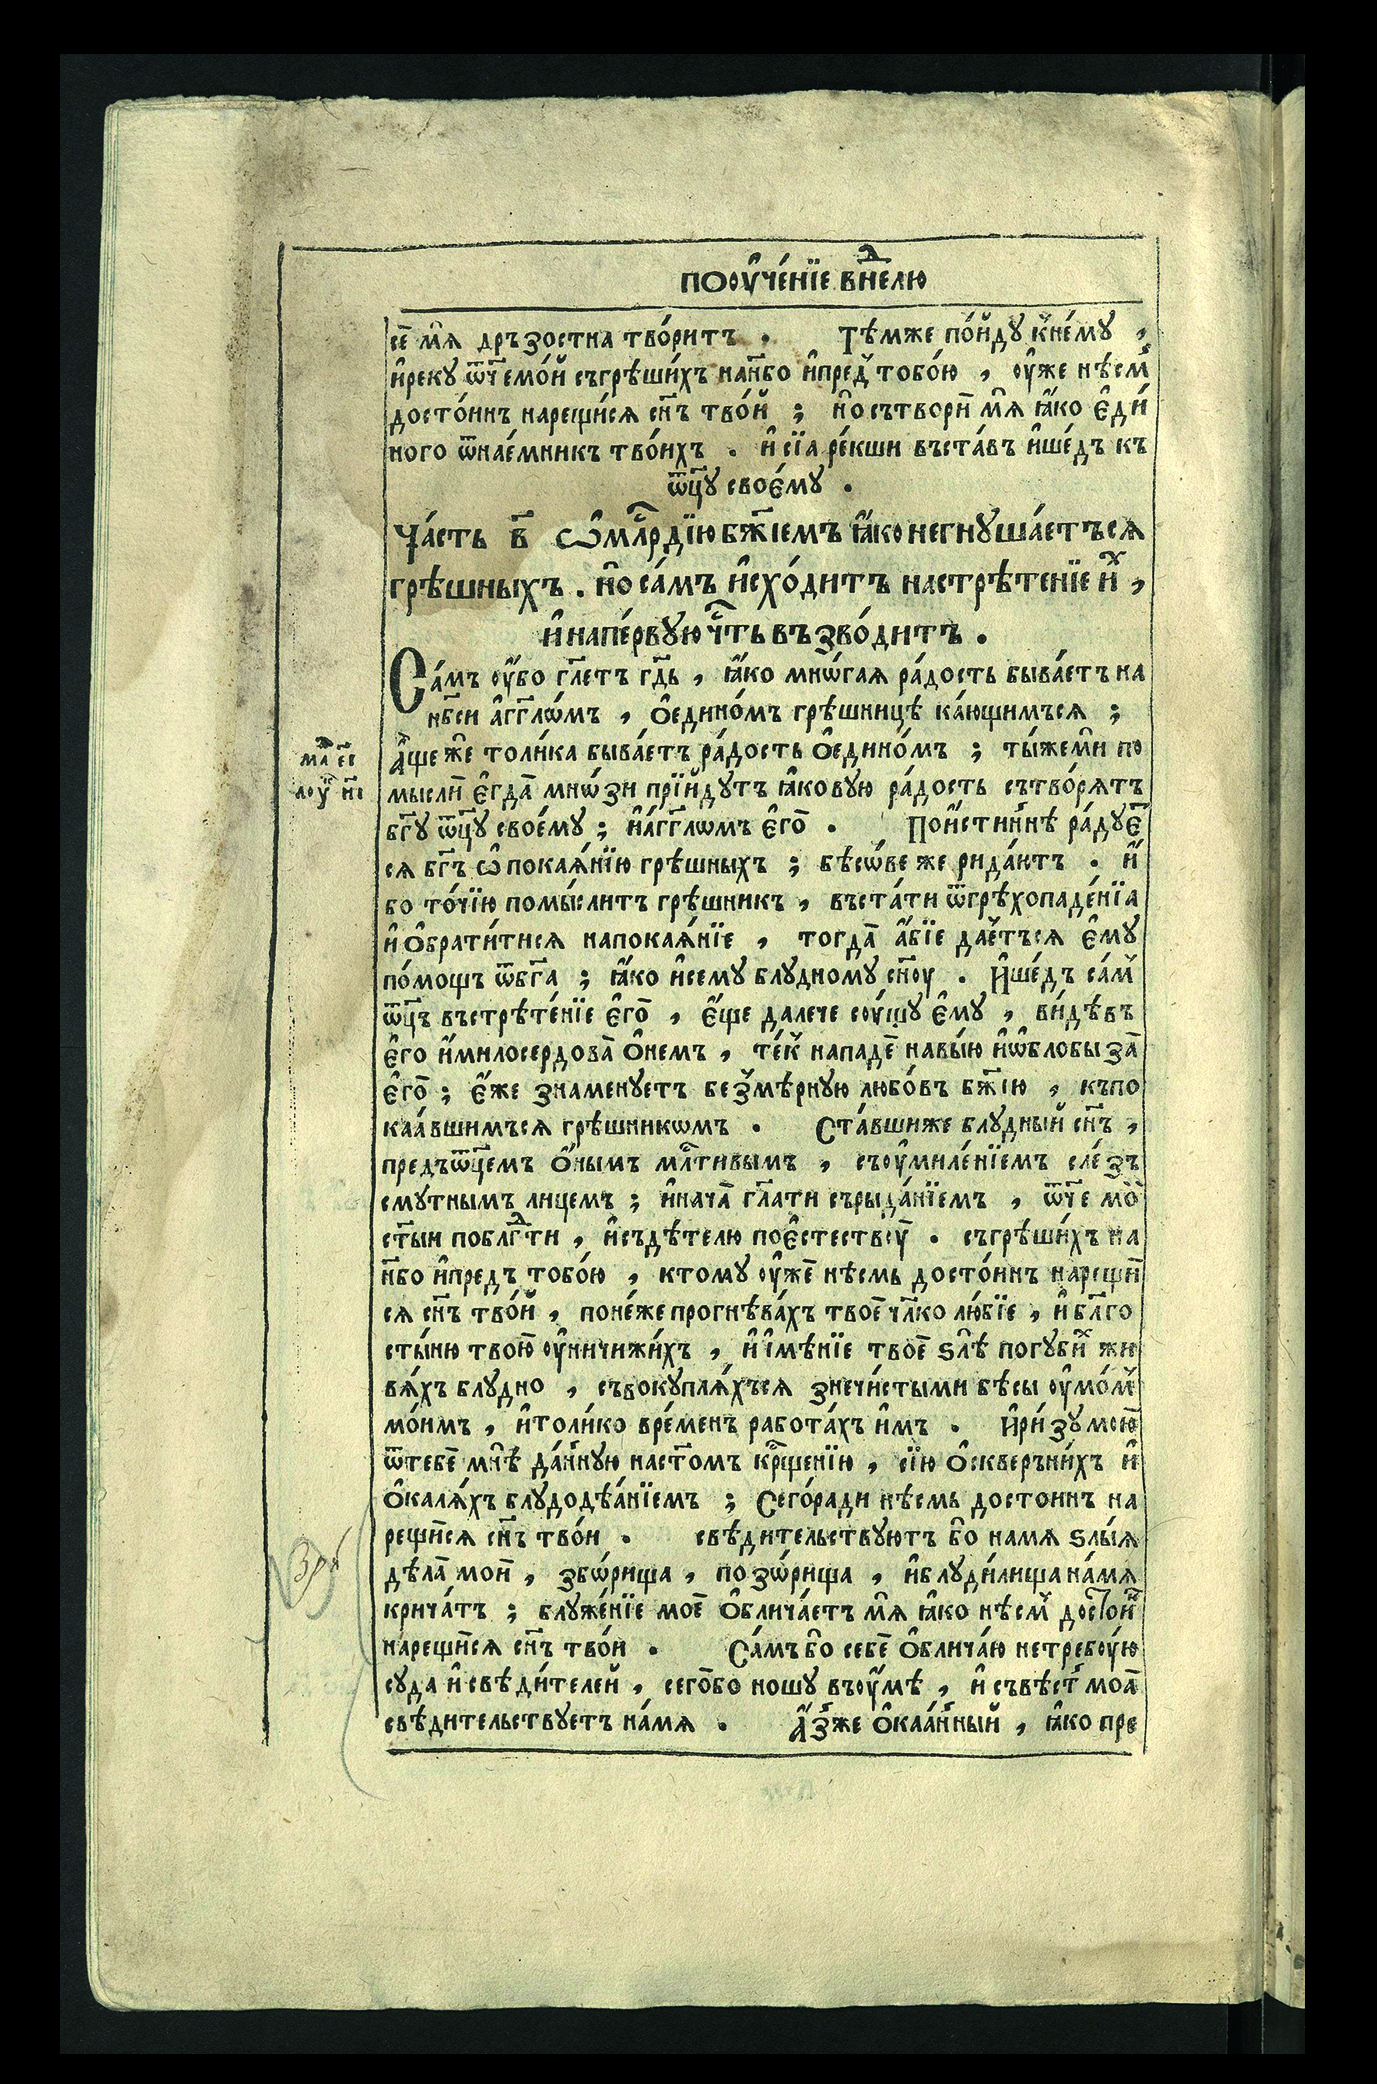 поѹче́нїе в҃ недⷧ҇ю
се҄ мѧ̀ дръзостна тво́ритъ . Тѣ́мже по́йду к̾не́му ,
и҆реку ѿч҃е мо́й съгрѣши́хъ нан҃бо и҆пред̾ тобо́ю , ѹ҆же нѣсм̾
досто́инъ нарещи́сѧ сн҃ъ тво́й ; н҆о сътвори҄ мѧ̀ ꙗ҆́ко є҆ди́
ного ѿнае́мникъ твои́хъ . и҆ сїа ре́кши въста́въ и҆ше́дъ къ
ѿц҃у свое́му .
Ча́сть в҃ ѡ҆ млⷭ҇рдїю бж҃іемъ ꙗ҆́ко негнуша́етъсѧ
грѣ́шныхъ . н҆о са́мъ и҆схо́дитъ настрѣ́тенїе и҆ⷯ ,
и҆ напе́рвую чⷭ҇ть възво́дитъ .
Са́мъ ѹ҆́бо гл҃етъ гд҃ь , ꙗ҆́ко мно́гаѧ ра́дость быва́етъ на
нб҃си а҆гг҃лѡ́мъ , ѻ҆едино́мъ грѣ́шницѣ ка́ющимъсѧ ;
А҆́ще же҄ толи́ка быва́етъ ра́дость ѻ҆едино́мъ ; ты́жемѝ по
мысли҄ є҆гда҄ мнѡ́зи прїи́йдутъ ꙗ҆́ковую ра́дость сътво́рѧтъ
бг҃у ѿц҃у свое́му ; и҆а҆́гг҃лѡмъ є҆го҄ . Пои҆́стиннѣ ра́дуеⷮ
сѧ бг҃ъ ѡ҆ покаѧ́нїю грѣ́шныхъ ; бѣсѡ́ве же рида́ютъ . и҆́
бо то́чїю помы́слитъ грѣ́шникъ , въста́ти ѿгрѣ́хопаде́нїа
и҆ ѻ҆брати́тисѧ напокаѧ́нїе , тогда҄ а҆́бїе дае́тъсѧ є҆му
по́мощъ ѿбг҃а ; ꙗ҆́ко и҆сему блудному сн҃оу . И҆ше́дъ са́м̾
ѿц҃ъ въстрѣте́нїе є҆го҄ , є҆́ще далече соу́щу є҆му , ви́дѣвъ
є҆го и҆́милосердова҄ ѻ҆немъ , те́к̾ нападе҄ навы́ю и҆ѡ҆блобыза҄
є҆го҄ ; є҆́же знаменуетъ без̾мѣ́рную любо́въ бж҃ію , къпо
каа́вшимъсѧ грѣ́шникѡмъ . Ста́вшиже блудный сн҃ъ ,
предъѿц҃емъ ѻ҆́нымъ млⷭ҇тивымъ , съѹ҆миле́нїемъ сле́зъ
смутнымъ лицемъ ; и҆нача҄ гл҃ати сърыда́нїемъ , ѿч҃е мо҄
ст҃ыи поблгⷣти , и҆съдѣ́телю поє҆стествоу҄ . съгрѣши́хъ на
н҃бо и҆предъ тобо́ю , ктому ѹ҆же҄ нѣсмь досто́инъ нарещи҄
сѧ сн҃ъ тво́й , поне́же прогнѣва́хъ твое҄ чл҃ко лю́бїе , и҆ бл҃го
сты́ню твою҄ ѹ҆ничижи́хъ , и҆ и҆мѣ́нїе твое҄ ѕлѣ̀ погубиⷯ жи
вѧ́хъ блудно , съвокуплѧ́хъсѧ знечи́стыми бѣсы ѹ҆мо́м̾
мо́имъ , и҆толи́ко вре́менъ работа́хъ и҆мъ . И҆ри́зу мою҄
ѿтебе҄ мнѣ̀ да́нную наст҃омъ крⷭ҇щенїю , сїю ѻ҆скверъни́хъ и҆
ѻ҆калѧ́хъ блудодѣа́нїемъ ; Сего́ради нѣсмь достоинъ на
рещи҄сѧ сн҃ъ тво́и . свѣ́дительствуютъ бо̀ намѧ ѕлы́ѧ
дѣла҄ мои҄ , збѡ́рища , позѡ́рища , и҆блуди́лища на́мѧ
крича́тъ ; блуже́нїе мое҄ ѻ҆блича́етъ мѧ̀ ꙗ҆́ко нѣсм̾ достоиⷩ
нарещи҄сѧ сн҃ъ тво́и . Са́мъ бо̀ себе҄ ѻ҆блича́ю нетребоу́ю
суда и҆свѣди́телей , сего҄бо ношу въѹ҆́мѣ , и҆ съвѣст̾ моа҄
свѣ́дительствуетъ на́мѧ . А҆́з̾же ѻ҆каа́нный , ꙗ҆́ко пре